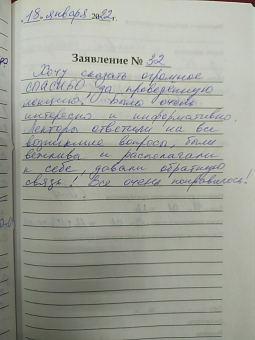 18. января 2022г.
Заявление № 32
Хочу сказать огромное
СПАСИБО за проведенную
лекцию, было очень
интересно и информативно.
Лекторы ответили на все
возникшие вопросы, были
вежливы и располагали
к себе, давали обратную
связь! Все очень понравилось!